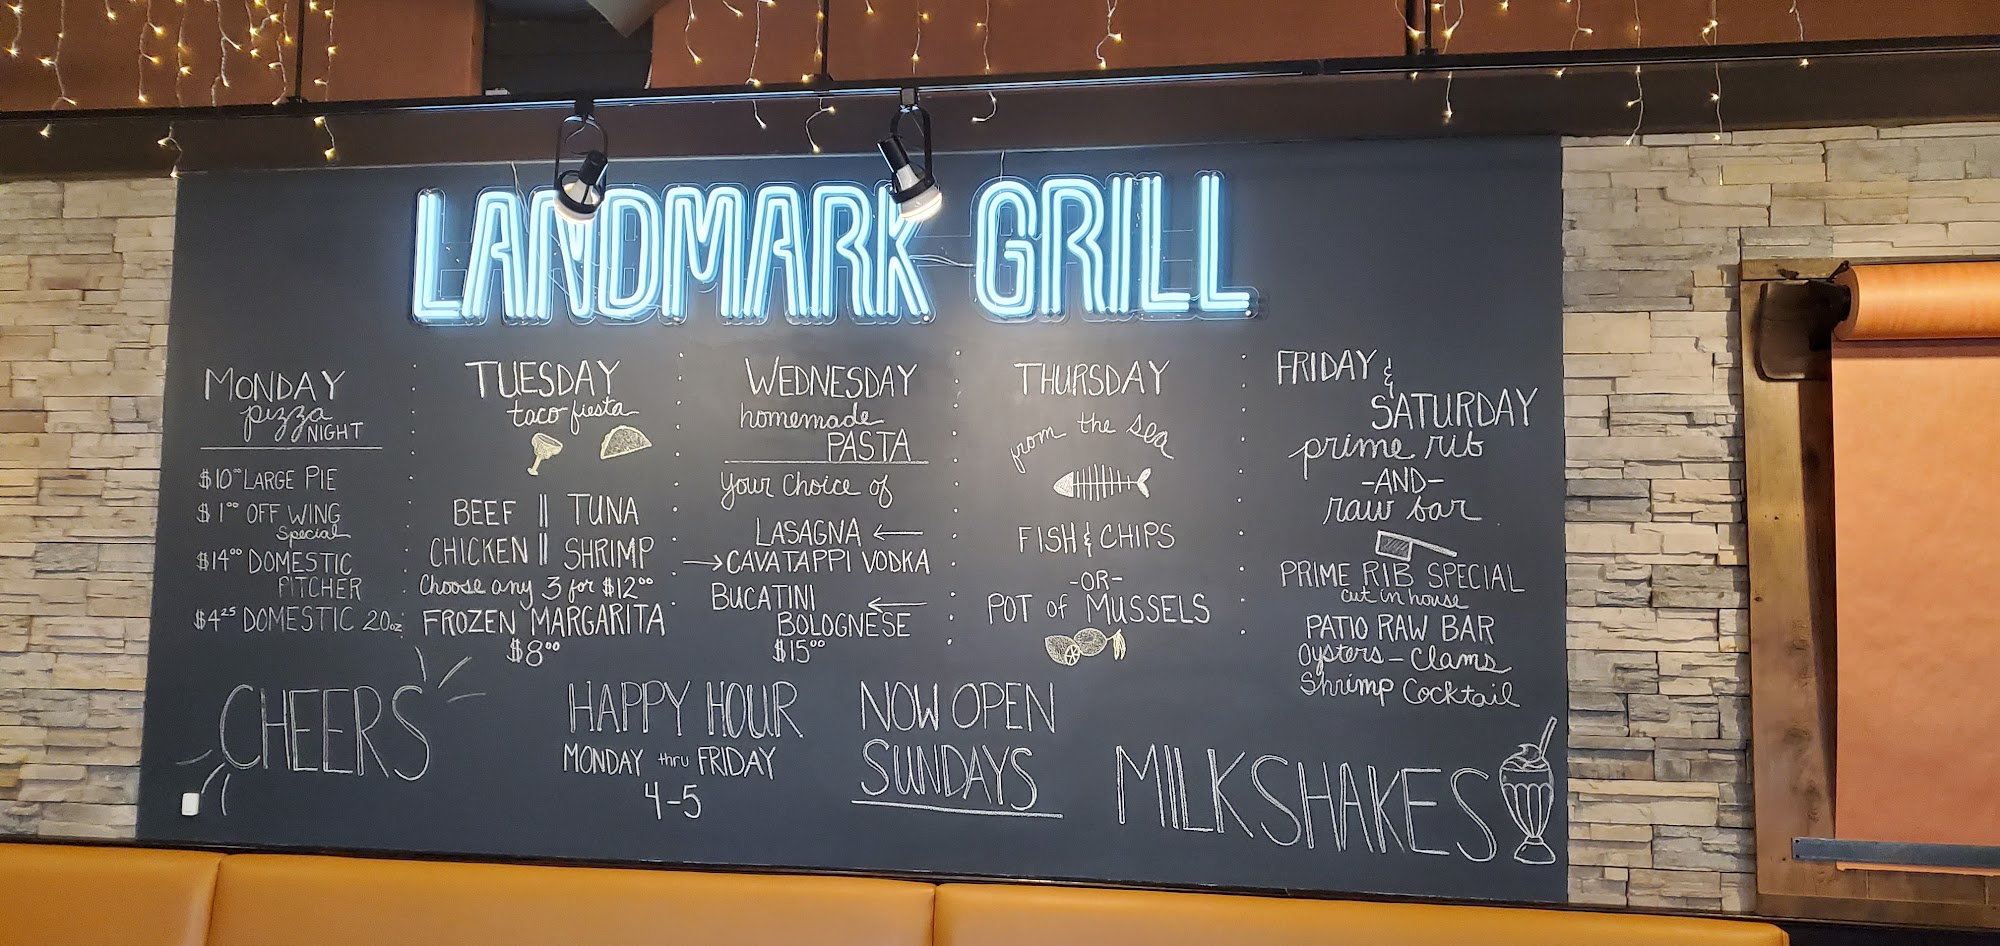 LANDMARK GRILL
MONDAY
pizza
NIGHT
$10⁰⁰ LARGE PIE
$1⁰⁰ OFF WING
Special
$14⁰⁰ DOMESTIC
PITCHER
$4²⁵ DOMESTIC 20oz
TUESDAY
taco fiesta
BEEF || TUNA
CHICKEN || SHRIMP
Choose any 3 for $12⁰⁰
FROZEN MARGARITA
$8⁰⁰
WEDNESDAY
homemade
PASTA
Your Choice of
LASAGNA ←
→ CAVATAPPI VODKA
BUCATINI ←
BOLOGNESE
$15⁰⁰
THURSDAY
from the sea
FISH & CHIPS
-OR-
POT of MUSSELS
FRIDAY &
SATURDAY
prime rib
-AND-
raw bar
PRIME RIB SPECIAL
cut in house
PATIO RAW BAR
Oysters - Clams
Shrimp Cocktail
CHEERS
HAPPY HOUR
MONDAY thru FRIDAY
4-5
NOW OPEN
SUNDAYS
MILKSHAKES